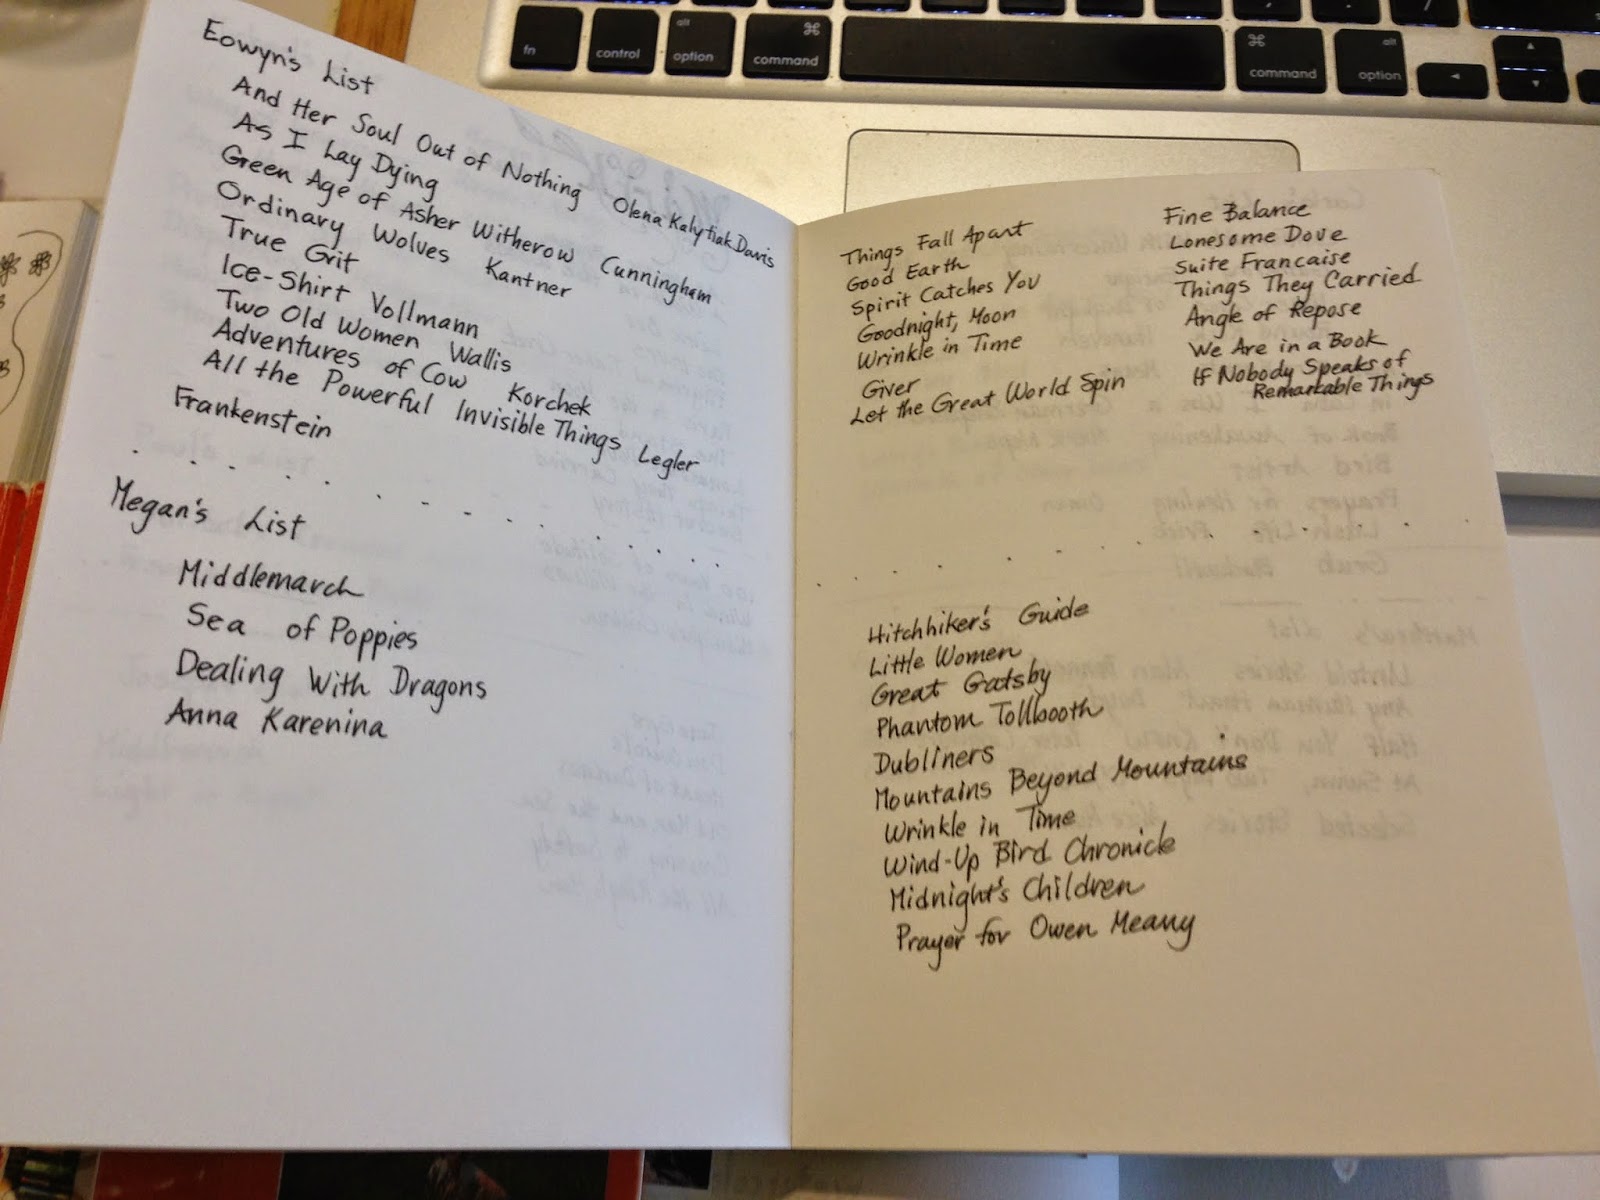 fn
control
alt
option
⌘
command
⌘
command
alt
option
Eowyn's List
And Her Soul Out of Nothing Olena Kalytiak Davis
As I Lay Dying
Green Age of Asher Witherow Cunningham
Ordinary Wolves Kantner
True Grit
Ice-Shirt Vollmann
Two Old Women Wallis
Adventures of Cow Korchek
All the Powerful Invisible Things Legler
Frankenstein
Megan's List
Middlemarch
Sea of Poppies
Dealing With Dragons
Anna Karenina
Things Fall Apart
Good Earth
Spirit Catches You
Goodnight, Moon
Wrinkle in Time
Giver
Let the Great World Spin
Fine Balance
Lonesome Dove
Suite Francaise
Things They Carried
Angle of Repose
We Are in a Book
If Nobody Speaks of
Remarkable Things
Hitchhiker's Guide
Little Women
Great Gatsby
Phantom Tollbooth
Dubliners
Mountains Beyond Mountains
Wrinkle in Time
Wind-Up Bird Chronicle
Midnight's Children
Prayer for Owen Meany